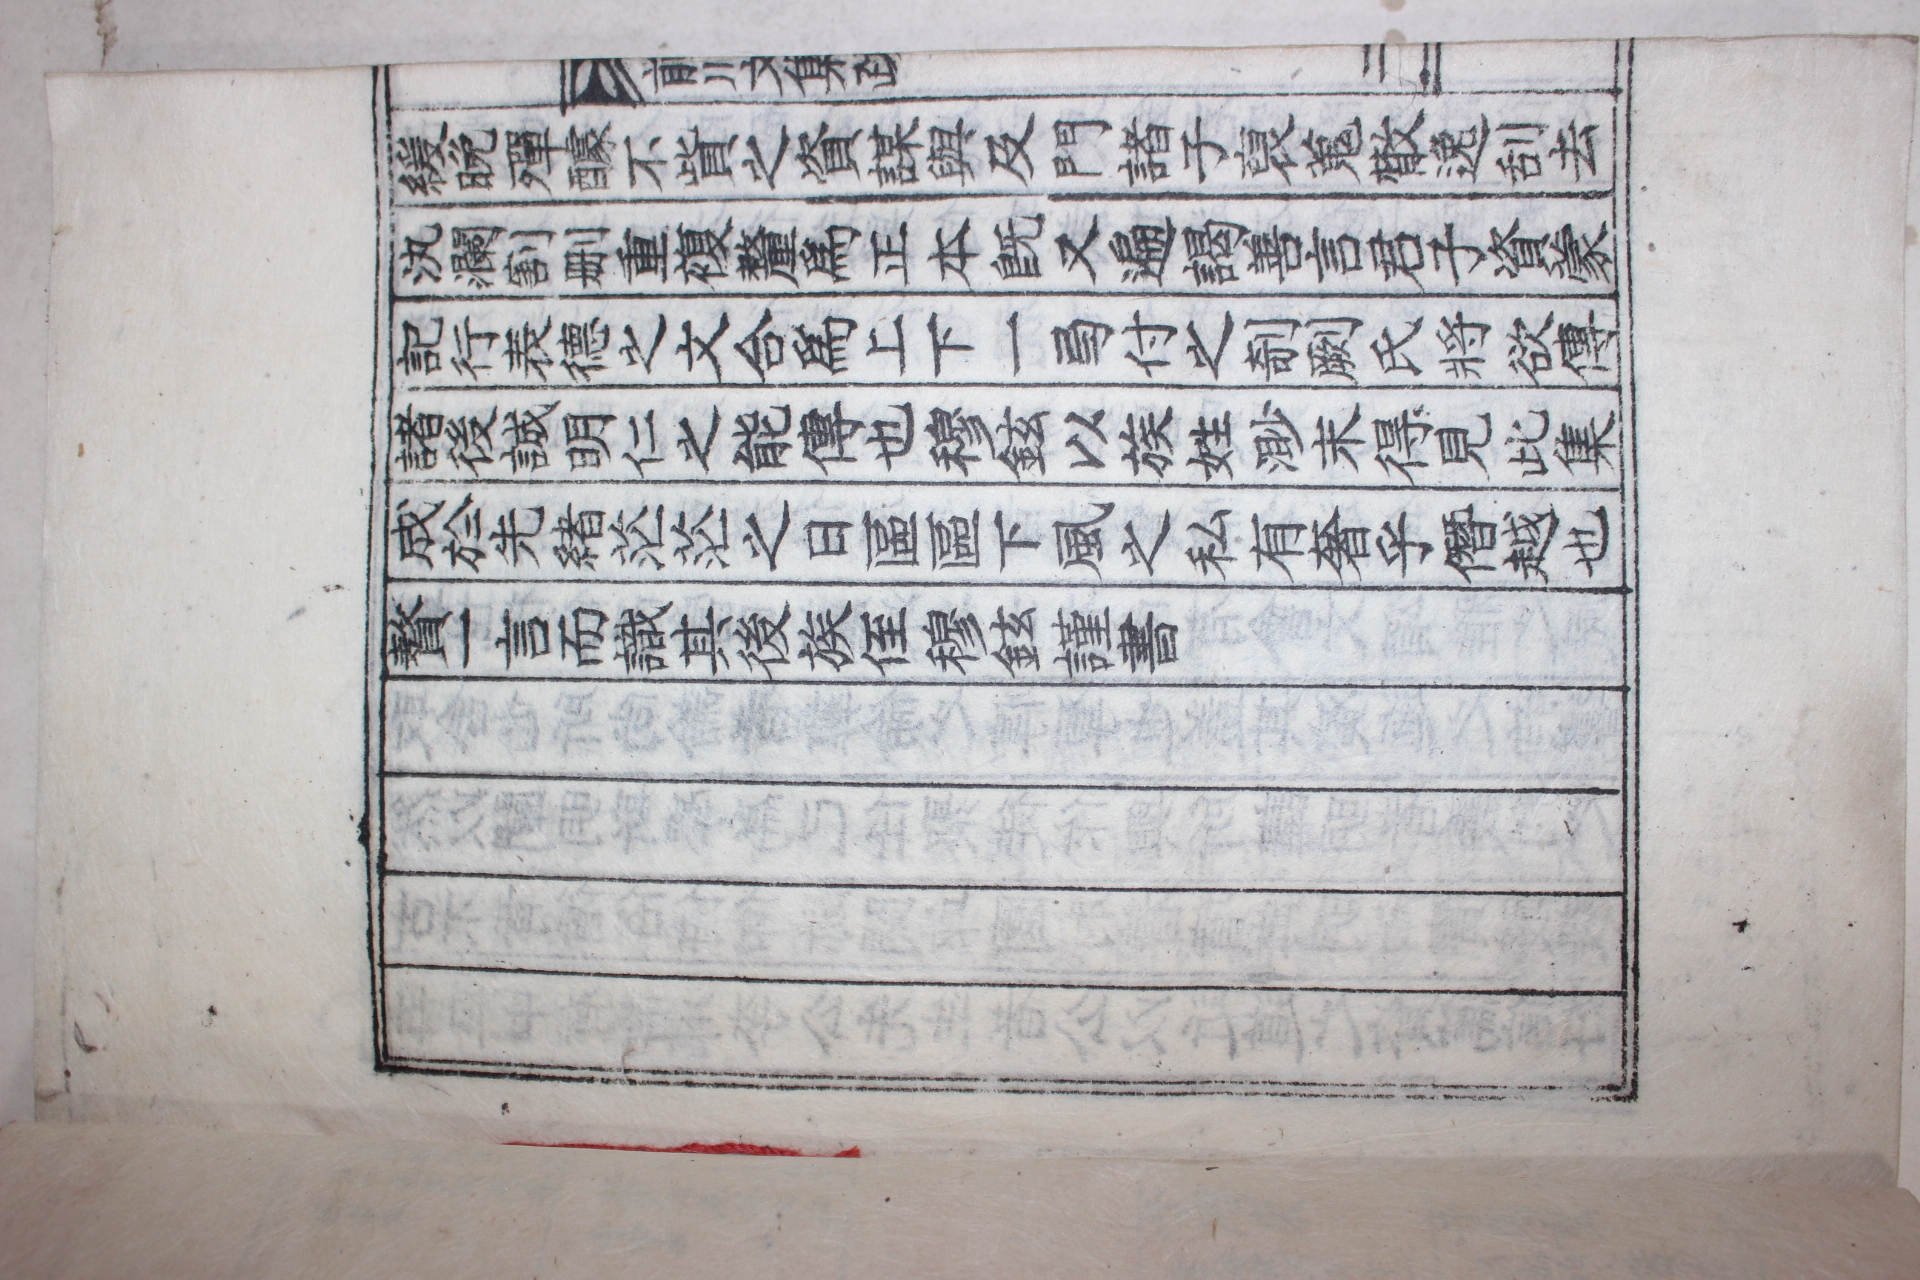 緩晩殫醵不貲之資謀與及門諸子裒蒐散逸刮去
汍瀾割刪重複釐爲正本旣又遍謁善言君子資蒙
記行表德之文合爲上下一弓付之剞劂氏將欲傳
諸後誠明仁之能傳也穆鉉以族姓渺末得見此集
成於先緖茫茫之日區區下風之私有奢乎僭越也
贅一言而識其後族侄穆鉉謹書
前川文集跋
二